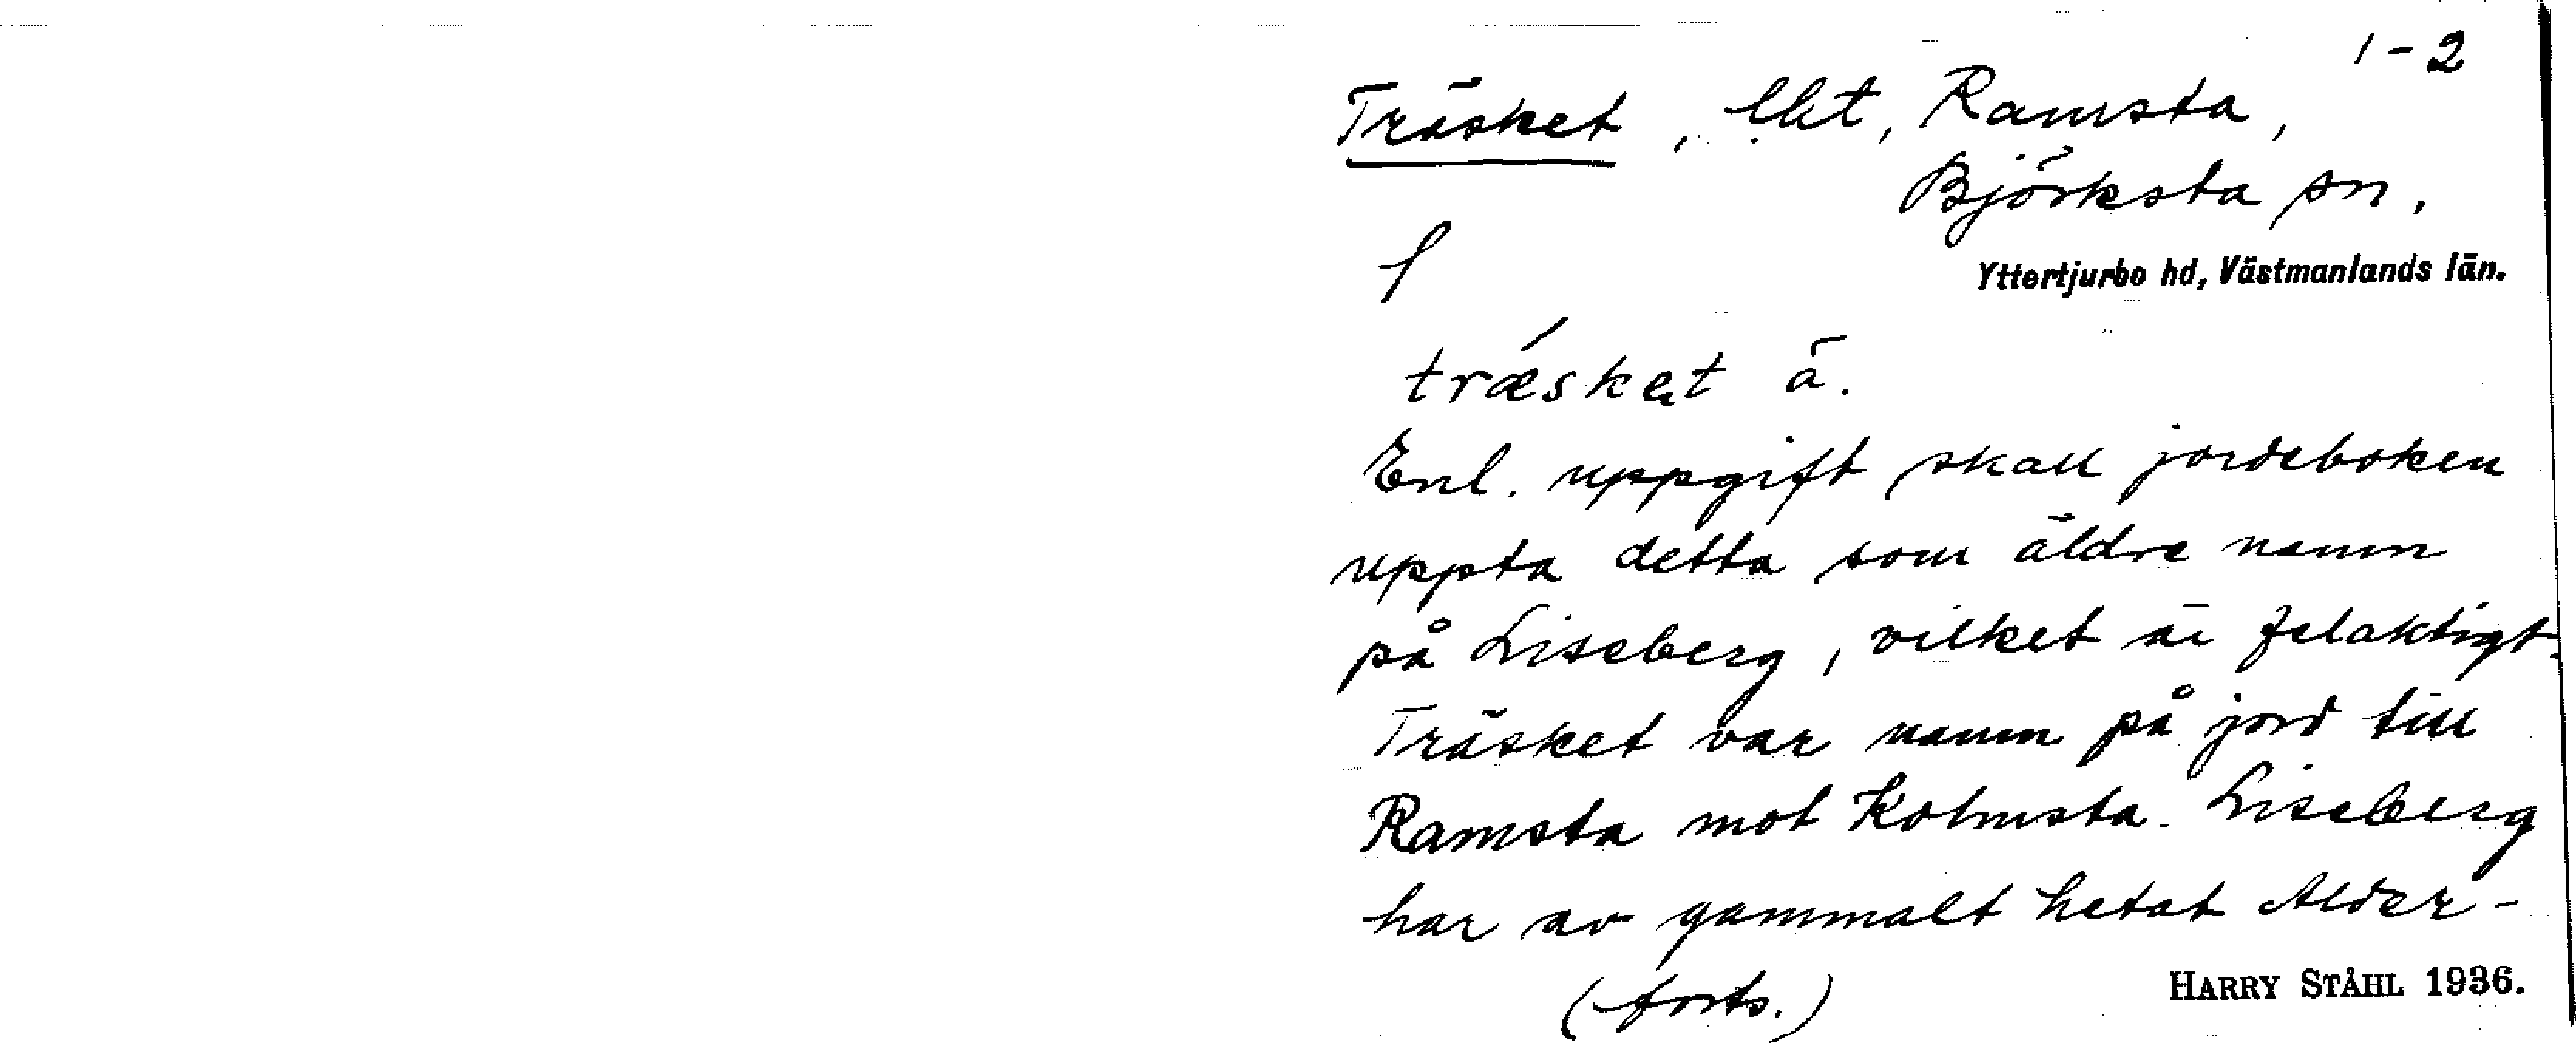 1-2
Träsket, lht, Ramsta,
Björksta sn.
Yttertjurbo hd, Västmanlands län.
f
træsket ä.
Enl. uppgift skall jordeboken
uppta detta som äldre namn
på Liseberg, vilket är felaktigt.
Träsket var namn på jord till
Ramsta mot Kolmsta. Liseberg
har av gammalt hetat Alder-
(forts.)
HARRY STÅHL 1936.